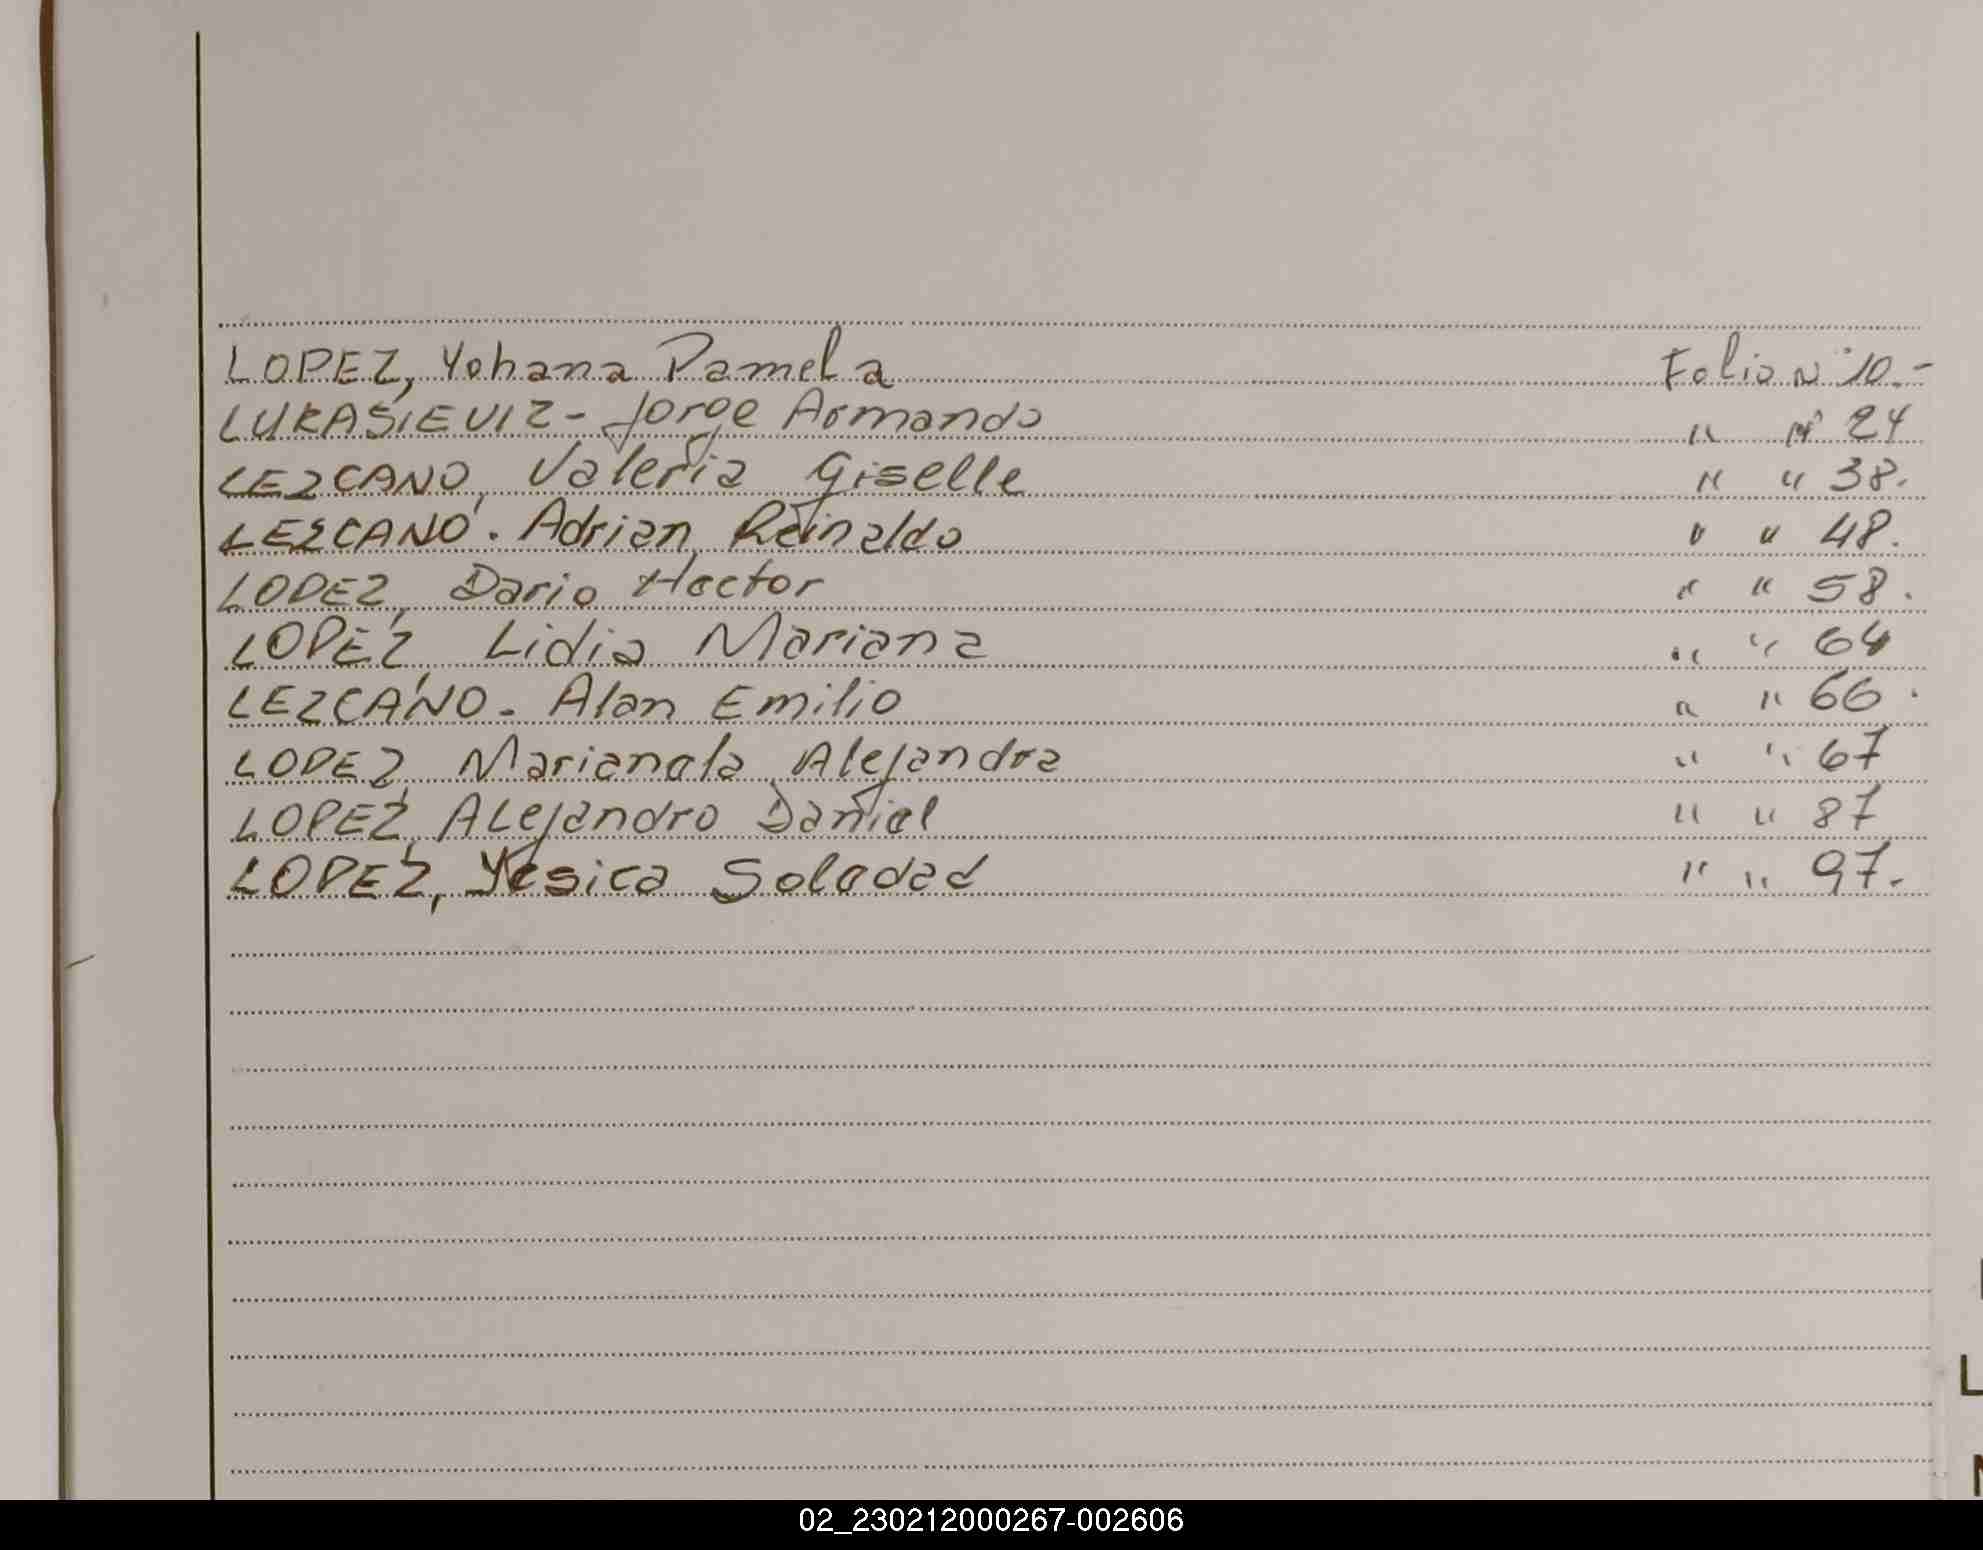 LOPEZ, Yohana Pamela Folio N° 10.-
LUKASIEVIZ- Jorge Armando " N° 24
LEZCANO, Valeria Giselle " " 38.
LEZCANO. Adrian Reinaldo " " 48.
LOPEZ, Dario Hector " " 58.
LOPEZ Lidia Mariana " " 64
LEZCANO. Alan Emilio " " 66.
LOPEZ, Marianela Alejandra " " 67
LOPEZ, Alejandro Daniel " " 87
LOPEZ, Yesica Soledad " " 97.
L
02_230212000267-002606